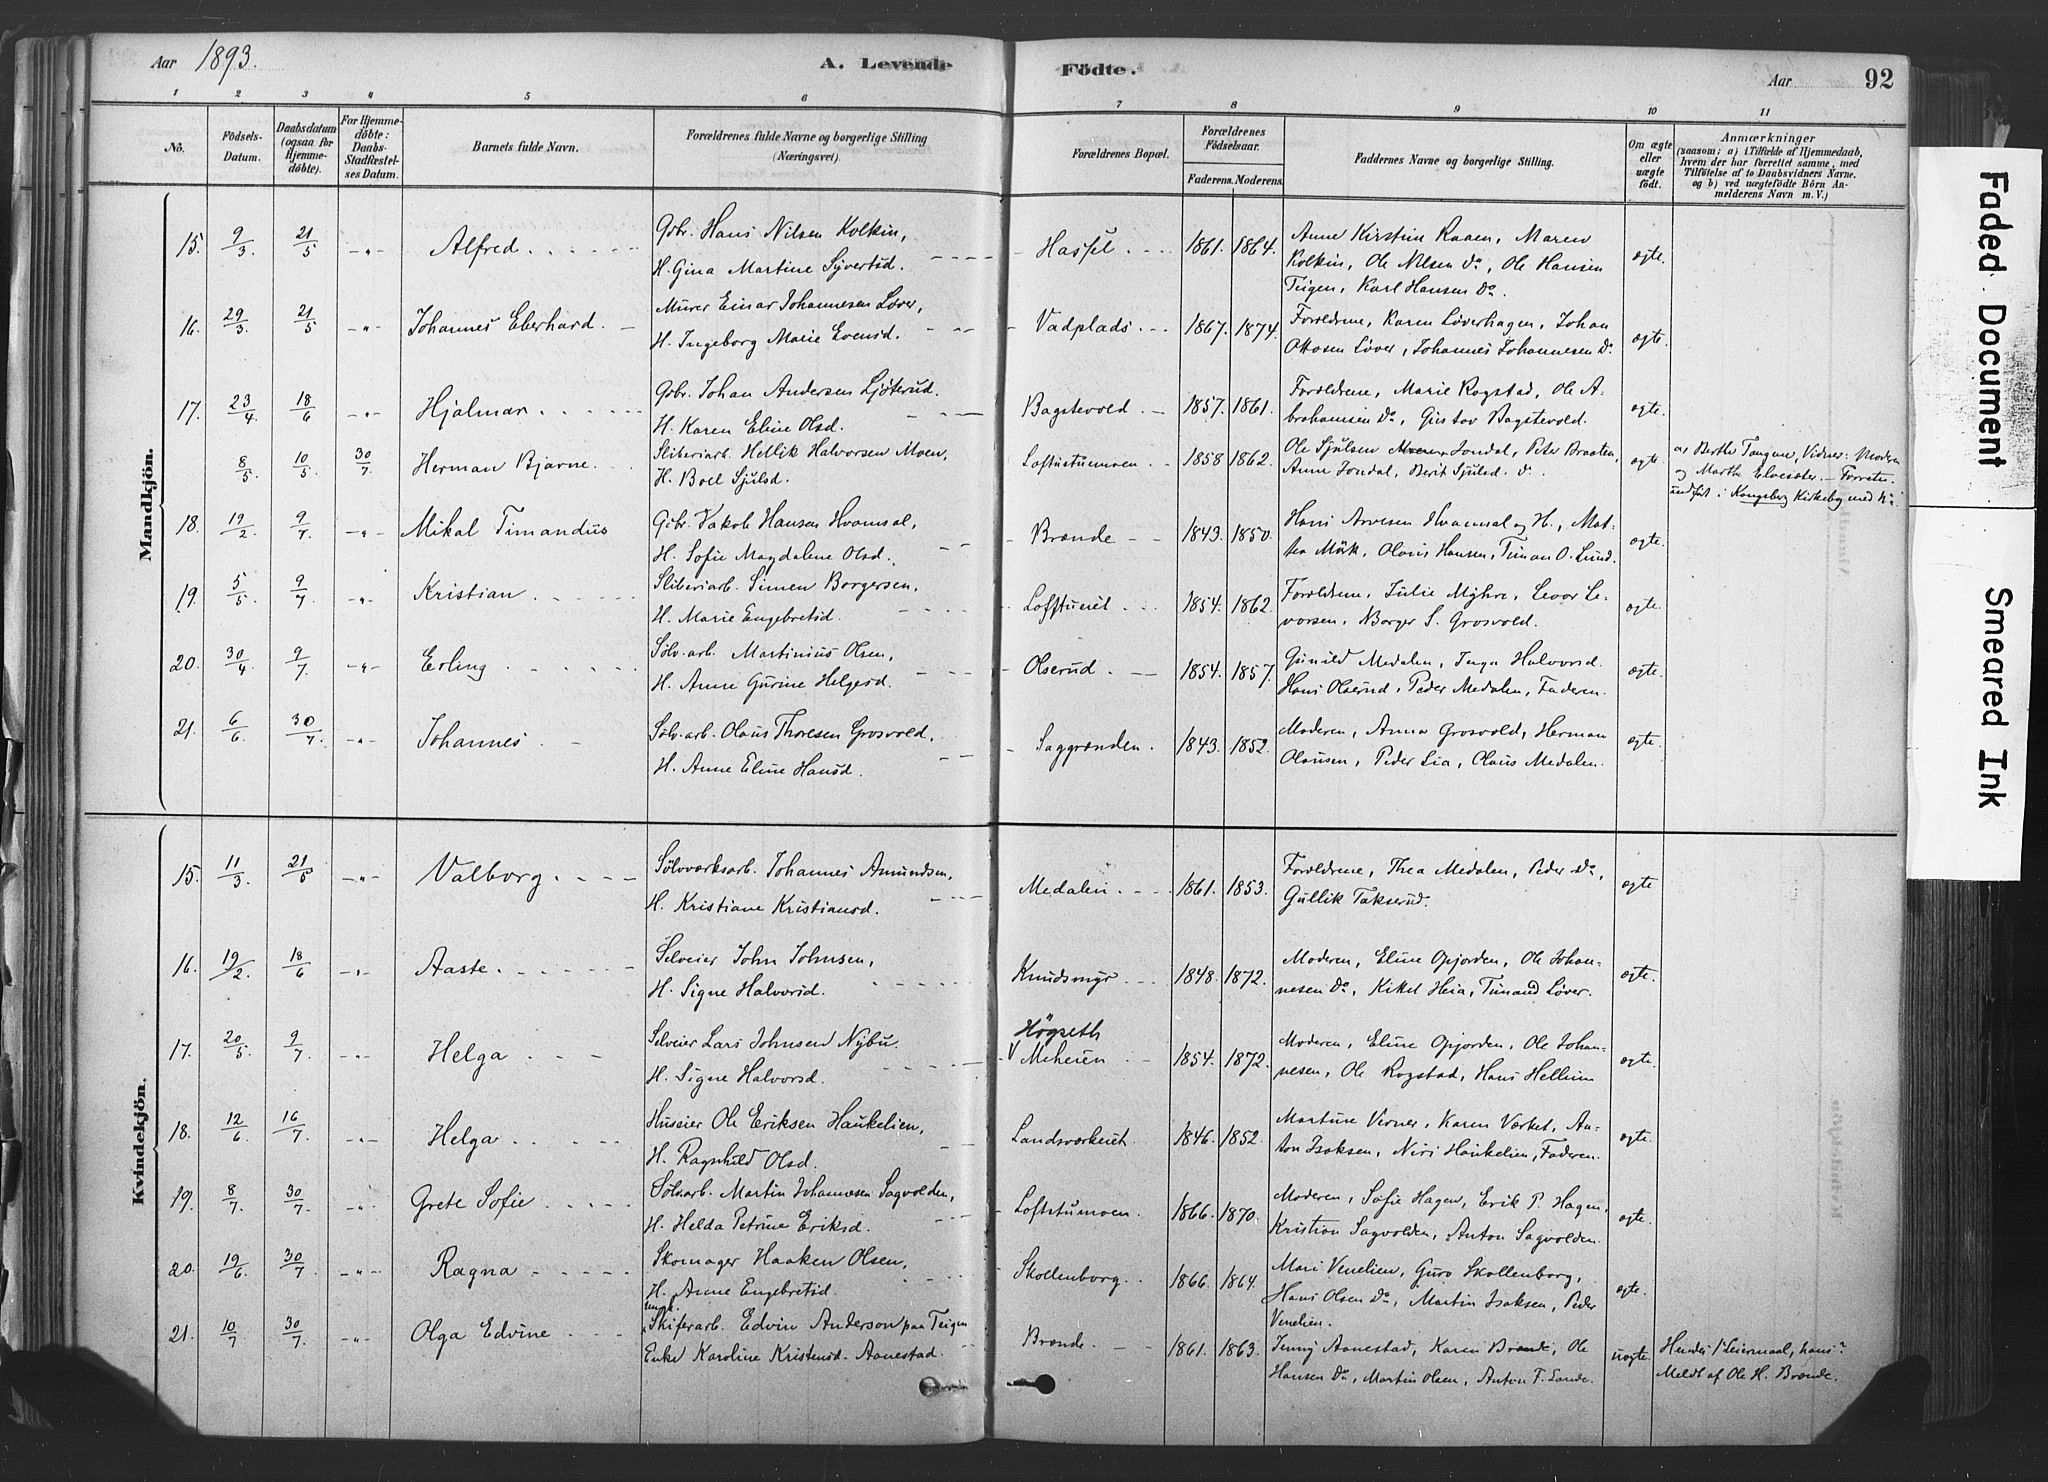 Aar 1893. A. Levende Födte. Aar 92
1 2 3 4 5 6 7 8 9 10 11
No.
Födsels-
Datum.
Daabsdatum
(ogsaa for
Hjemme-
döbte).
For Hjemme-
döbte:
Daabs-
Stadfæstel-
ses Datum.
Barnets fulde Navn.
Forældrenes fulde Navne og borgerlige Stilling
(Næringsvei).
Forældrenes Bopæl.
Forældrenes
Födselsaar.
Faderens. Moderens.
Faddernes Navne og borgerlige Stilling.
Om ægte
eller
uægte
födt.
Anmærkninger
(saasom: a) i Tilfælde af Hjemmedaab,
hvem der har forrettet samme, med
Tilföielse af to Daabsvidners Navne,
og b) ved uægtefödte Börn An-
melderens Navn m. V.)
Mandkjön.
15. 9/3 21/5 -"- Alfred
Gbr. Hans Nilsen Kolkin,
H. Gina Martine Syvertsd.
Hassel 1861. 1864.
Anne Kirstin Raaen, Maren
Kolkin, Ole Nilsen do, Ole Hansen
Teigen, Karl Hansen do.
ægte.
16. 29/3 21/5 -"- Johannes Eberhard.
Murer Einar Johannesen Løver,
H. Ingeborg Marie Evensd.
Vadplads 1867. 1874.
Forældrene, Karen Løverhagen, Johan
Ottosen Løver, Johannes Johannesen do.
ægte.
17. 23/4 18/6 -"- Hjalmar
Gbr. Johan Andersen Ljøterud.
H. Karen Eline Olsd.
Bagstevold 1857. 1861.
Forældrene, Marie Rogstad, Ole A-
brahamsen do, Gustav Bagstevold.
ægte.
8/5 10/5 30/7 Herman Bjarne.
Sliberiarb. Hellik Halvorsen Moen,
H. Boel Sjulsd.
Loftustumoen 1858 1862.
Ole Sjulsen Jondal, Peter Braaten,
Anne Jondal, Berit Sjulsd. do.
ægte.
a, Berthe Tangen, Vidner: Moderen
og Marthe Elvesæter. –
indført i Kongsberg Kirkebog med No.
18. 19/2 9/7 -"- Mikal Timandus
Gbr. Jakob Hansen Hvamsal,
H. Sofie Magdalene Olsd.
Brænde 1843. 1850.
Hans Arvesen Hvamsal og H., Mat-
tea Mørk, Olaus Hansen, Timan O. Lund.
ægte.
19. 5/5 9/7 -"- Kristian
Sliberiarb. Simen Borgersen,
H. Marie Engebretsd.
Lofttueiet 1854. 1862.
Forældrene, Julie Myhre, Levor Le-
vorsen, Borger S. Grosvold.
ægte.
20. 30/4 9/7 -"- Erling
Sølv.arb. Martinius Olsen,
H. Anne Gurine Helgesd.
Olserud 1854. 1857.
Gunild Medalen, Inga Halvorsd.
Hans Olserud, Peder Medalen, Faderen.
ægte.
21. 6/6 30/7 -"- Johannes
Sølv.arb. Olaus Thoresen Grosvold,
H. Anne Eline Hansd.
Saggrenden. 1843. 1852.
Moderen, Anna Grosvold, Herman
Olausen, Peder Lia, Olaus Medalen.
ægte.
Kvindekjön.
15. 11/3 21/5 -"- Valborg
Sølvværksarb. Johannes Amundsen,
H. Kristiane Kristiansd.
Medalen 1861. 1853.
Forældrene, Thea Medalen, Peder do,
Gullik Takserud.
ægte
16. 19/2 18/6 -"- Aaste
Selveier John Johnsen,
H. Signe Halvorsd.
Knudsmyr 1848. 1872.
Moderen, Eline Opjorden, Ole Johan-
nesen do, Kittel Heia, Timand Løver.
ægte.
17. 20/5 9/7 -"- Helga
Selveier Lars Johnsen Nybu
H. Signe Halvorsd.
Høgseth
V Meheien 1854. 1872.
Moderen, Eline Opjorden, Ole Johan-
nesen, Ole Rogstad, Hans Hellum
ægte.
18. 12/6 16/7 -"- Helga
Huseier Ole Eriksen Haukelien,
H. Ragnhild Olsd.
Landsværkeiet 1846. 1852.
Martine Verner, Karen Værket, An-
ton Isaksen, Niri Haukelien, Faderen.
ægte.
19. 8/7 30/7 -"- Grete Sofie
Sølv.arb. Martin Johannesen Sagvolden,
H. Helda Petrine Eriksd.
Loftstumoen 1866. 1870.
Moderen, Sofie Hagen, Erik P. Hagen,
Kristian Sagvolden, Anton Sagvolden.
ægte.
20. 19/6 30/7 -"- Ragna
Skomager Haaken Olsen,
H. Anne Engebretsd.
Skollenborg. 1866. 1864.
Mari Venelien, Guro Skollenborg,
Hans Olsen do, Martin Isaksen, Peder
Venelien.
ægte.
21. 10/7 30/7 -"- Olga Edvine
ungk.
Skiferarb. Edvin Anderson paa Teigen
Enke Karoline Kristensd. Aanestad.
Brænde 1861. 1863.
Jenny Aanestad, Karen Brænde, Ole
Hansen do, Martin Olsen, Anton F. Sande.
uægte.
Hendes 1ste Leiermaal, hans ?
Meldt af Ole H. Brænde.
Faded Document
Smeared Ink